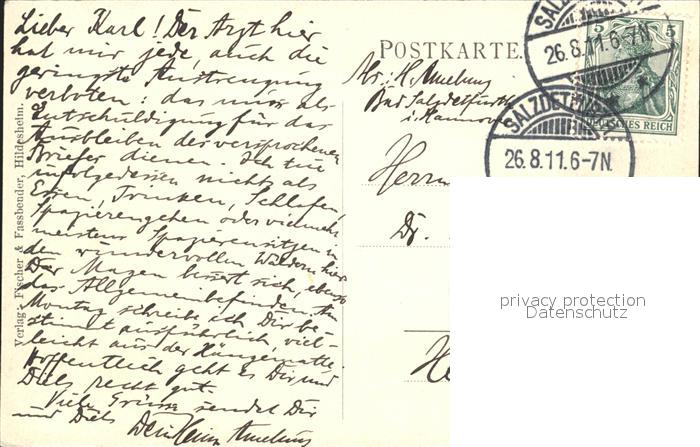 Lieber Karl! Der Arzt hier
hat mir jede, auch die
geringste Anstrengung
verboten: das muss als
Entschuldigung für das
Ausbleiben des versprochenen
Briefes dienen. Ich tue
infolgedessen nichts als
Essen, Trinken, Schlafen,
Spazierengehen oder vielmehr
meistens Spazierensitzen in
den wundervollen Wäldern hier.
Der Magen bessert sich, ebenso
das Allgemeinbefinden. Am
Montag schreibe ich Dir be-
stimmt ausführlich, viel-
leicht aus der Hängematte.
Hoffentlich geht es Dir und
Diels recht gut.
Viele Grüsse sendet Dir
und Diels Dein Heinr. Ameluns
Verlag: Fischer & Fassbender, Hildesheim.
POSTKARTE.
Abs: H. Amelung
Bad Salzdetfurth
i. Hannover
Herrn
Dr.
SALZDETFURTH
26.8.11.6-7N
SALZDETFURTH
26.8.11.6-7N.
5 5
DEUTSCHES REICH
privacy protection
Datenschutz